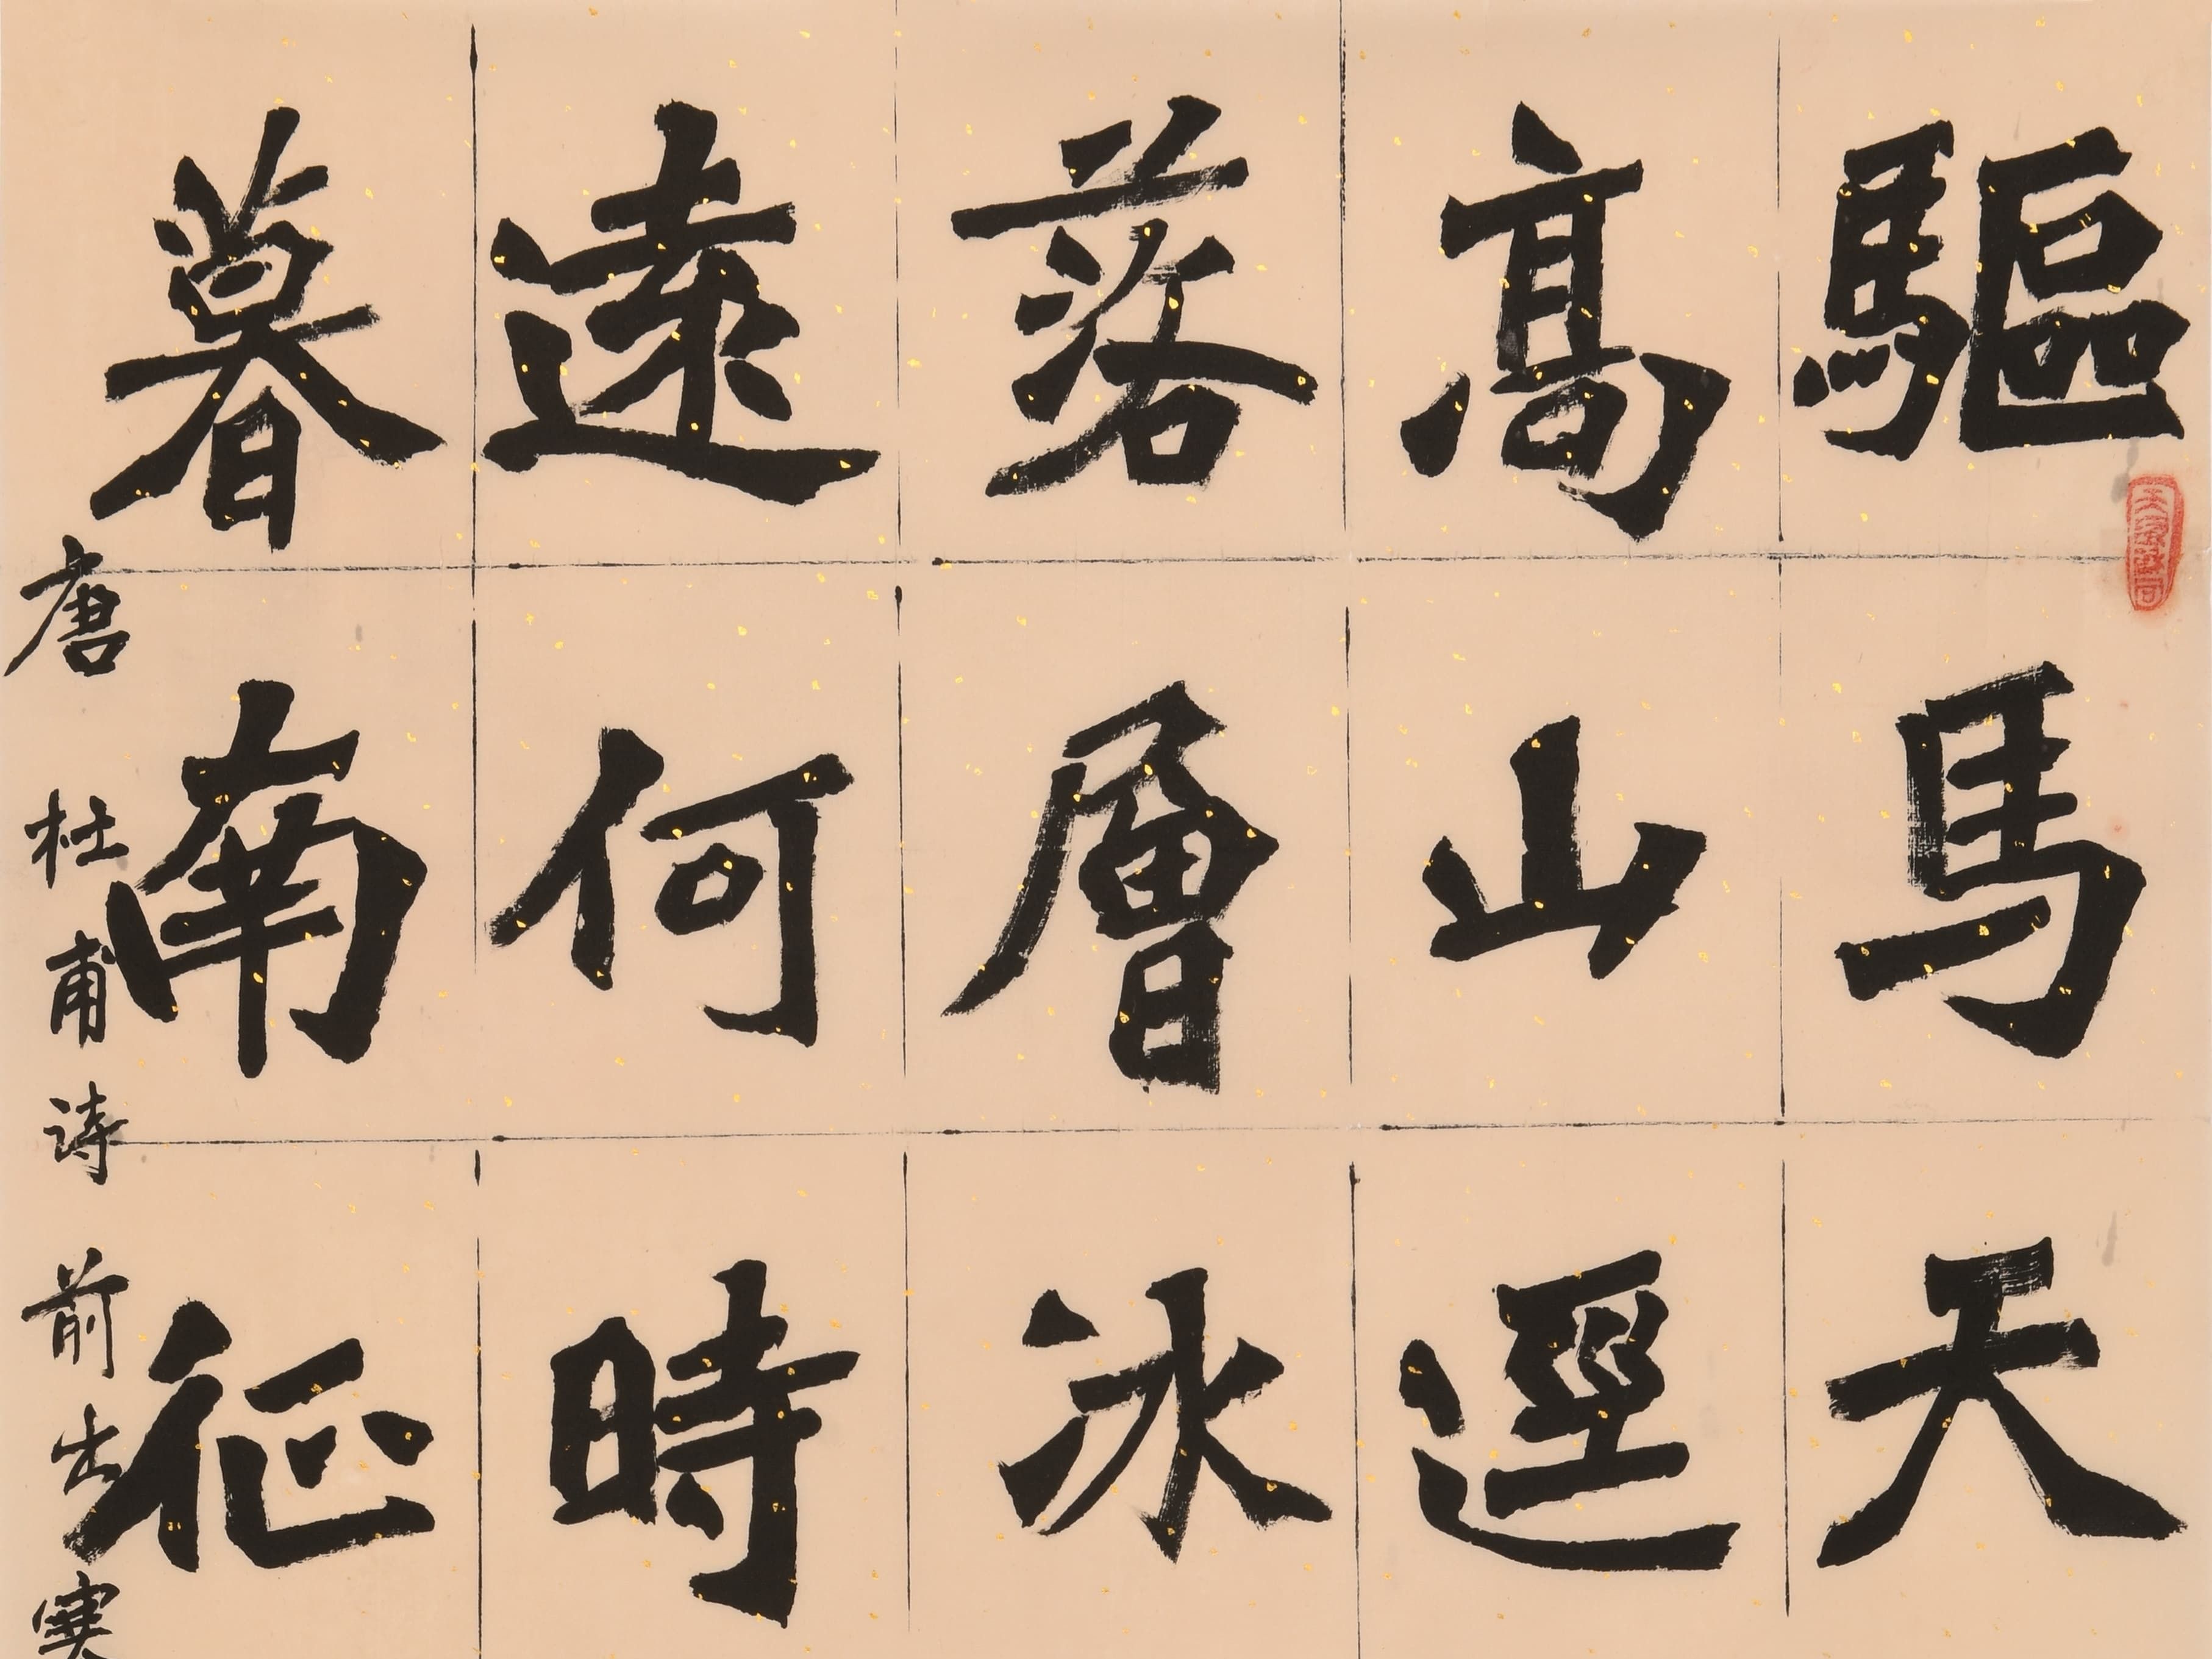 驅馬天
高山逕
落層冰
遠何時
暮南征
唐杜甫诗前出塞